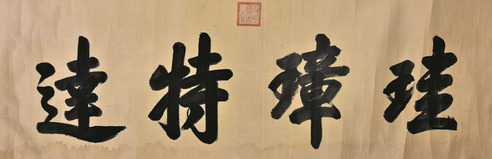 珪璋特達